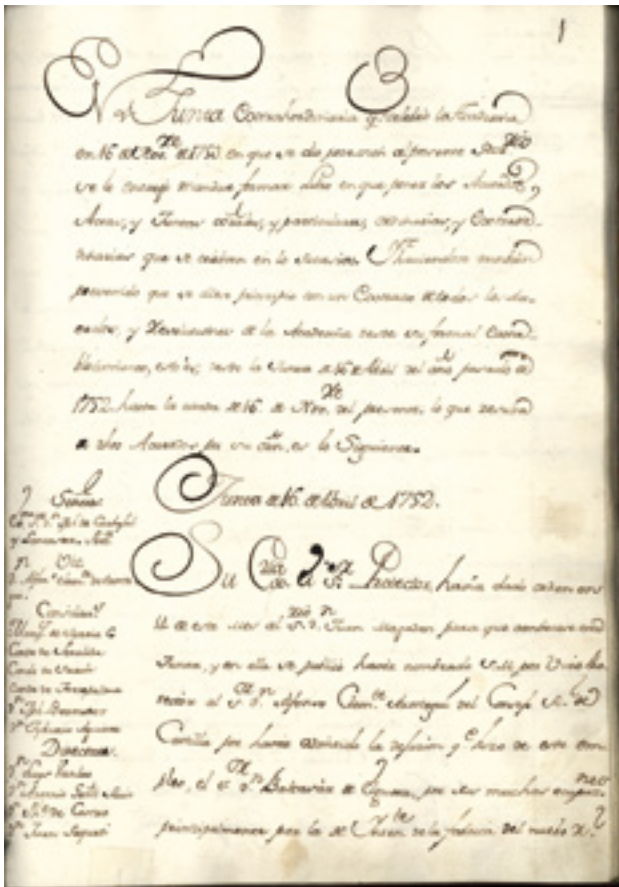 1
En Junta Extrahordinaria q. celebró la Academia
en 16 de Nov.re de 1753. en que se dio posesion al presente Secret.rio
se le encargó mandase formar Libro en que poner los Acuerdos,
Actas, y Juntas y particulares, ordinarias, y Extrahor-
dinarias que se celebren en lo sucesivo. Y haviendose tambien
prevenido que se diese principio con un Extracto de todos los Acu-
erdos, y Resoluciones de la Academia desde su formal Estta-
blecimiento, esto es, desde la Junta de 16 de Abril del año pasado de
1752. hasta la citada de 16. de Nov.re del presente, lo que resulta
de dhos Acuerdos por su orn, es lo Siguiente.
Junta de 16. de Abril de 1752.
Señores
Ex.mo S.r D.n Jph. de Carbajal
y Lancaster.
Vic.
Consiliar.s
Conde de Saceda
Conde de
Conde de Torrepalma
D.n Tiburcio Aguirre
Directores.
D.n Luis Vanloo
D.n Antonio
D.n Juan Pasqual
Su Ex.cia el S.r Protector havia dado orden en
11 de este Mes al S.rio D.n Juan Magadan para que combocase esta
Junta, y en ella se publicó haver nombrado S.M. por Vice Pro-
tector al S.r D.n Alfonso Clem.te Arostegui del Consejo R.l de
Castilla por haver admitido la dejacion q.e hizo de este em-
pleo, el S.r D.n Baltasar de Elgueta, por sus muchas ocupac.nes
principalmente por la de Inten.te de la fabrica del nuevo R.l